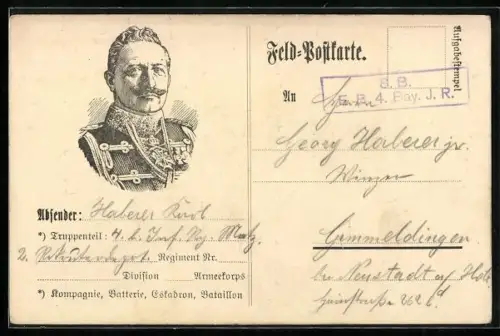 Feld-Postkarte.
Aufgabestempel
S. B.
E. B. 4. Bay. J. R.
An
Herrn
Georg Haberer jr.
Winzer
Gimmeldingen
bei Neustadt a/
Absender: Haberer Karl
*) Truppenteil: 4. b. Inf. Reg. Metz
2. Rekrutendepot. Regiment Nr.
Division Armeekorps
*) Kompagnie, Batterie, Eskadron, Bataillon